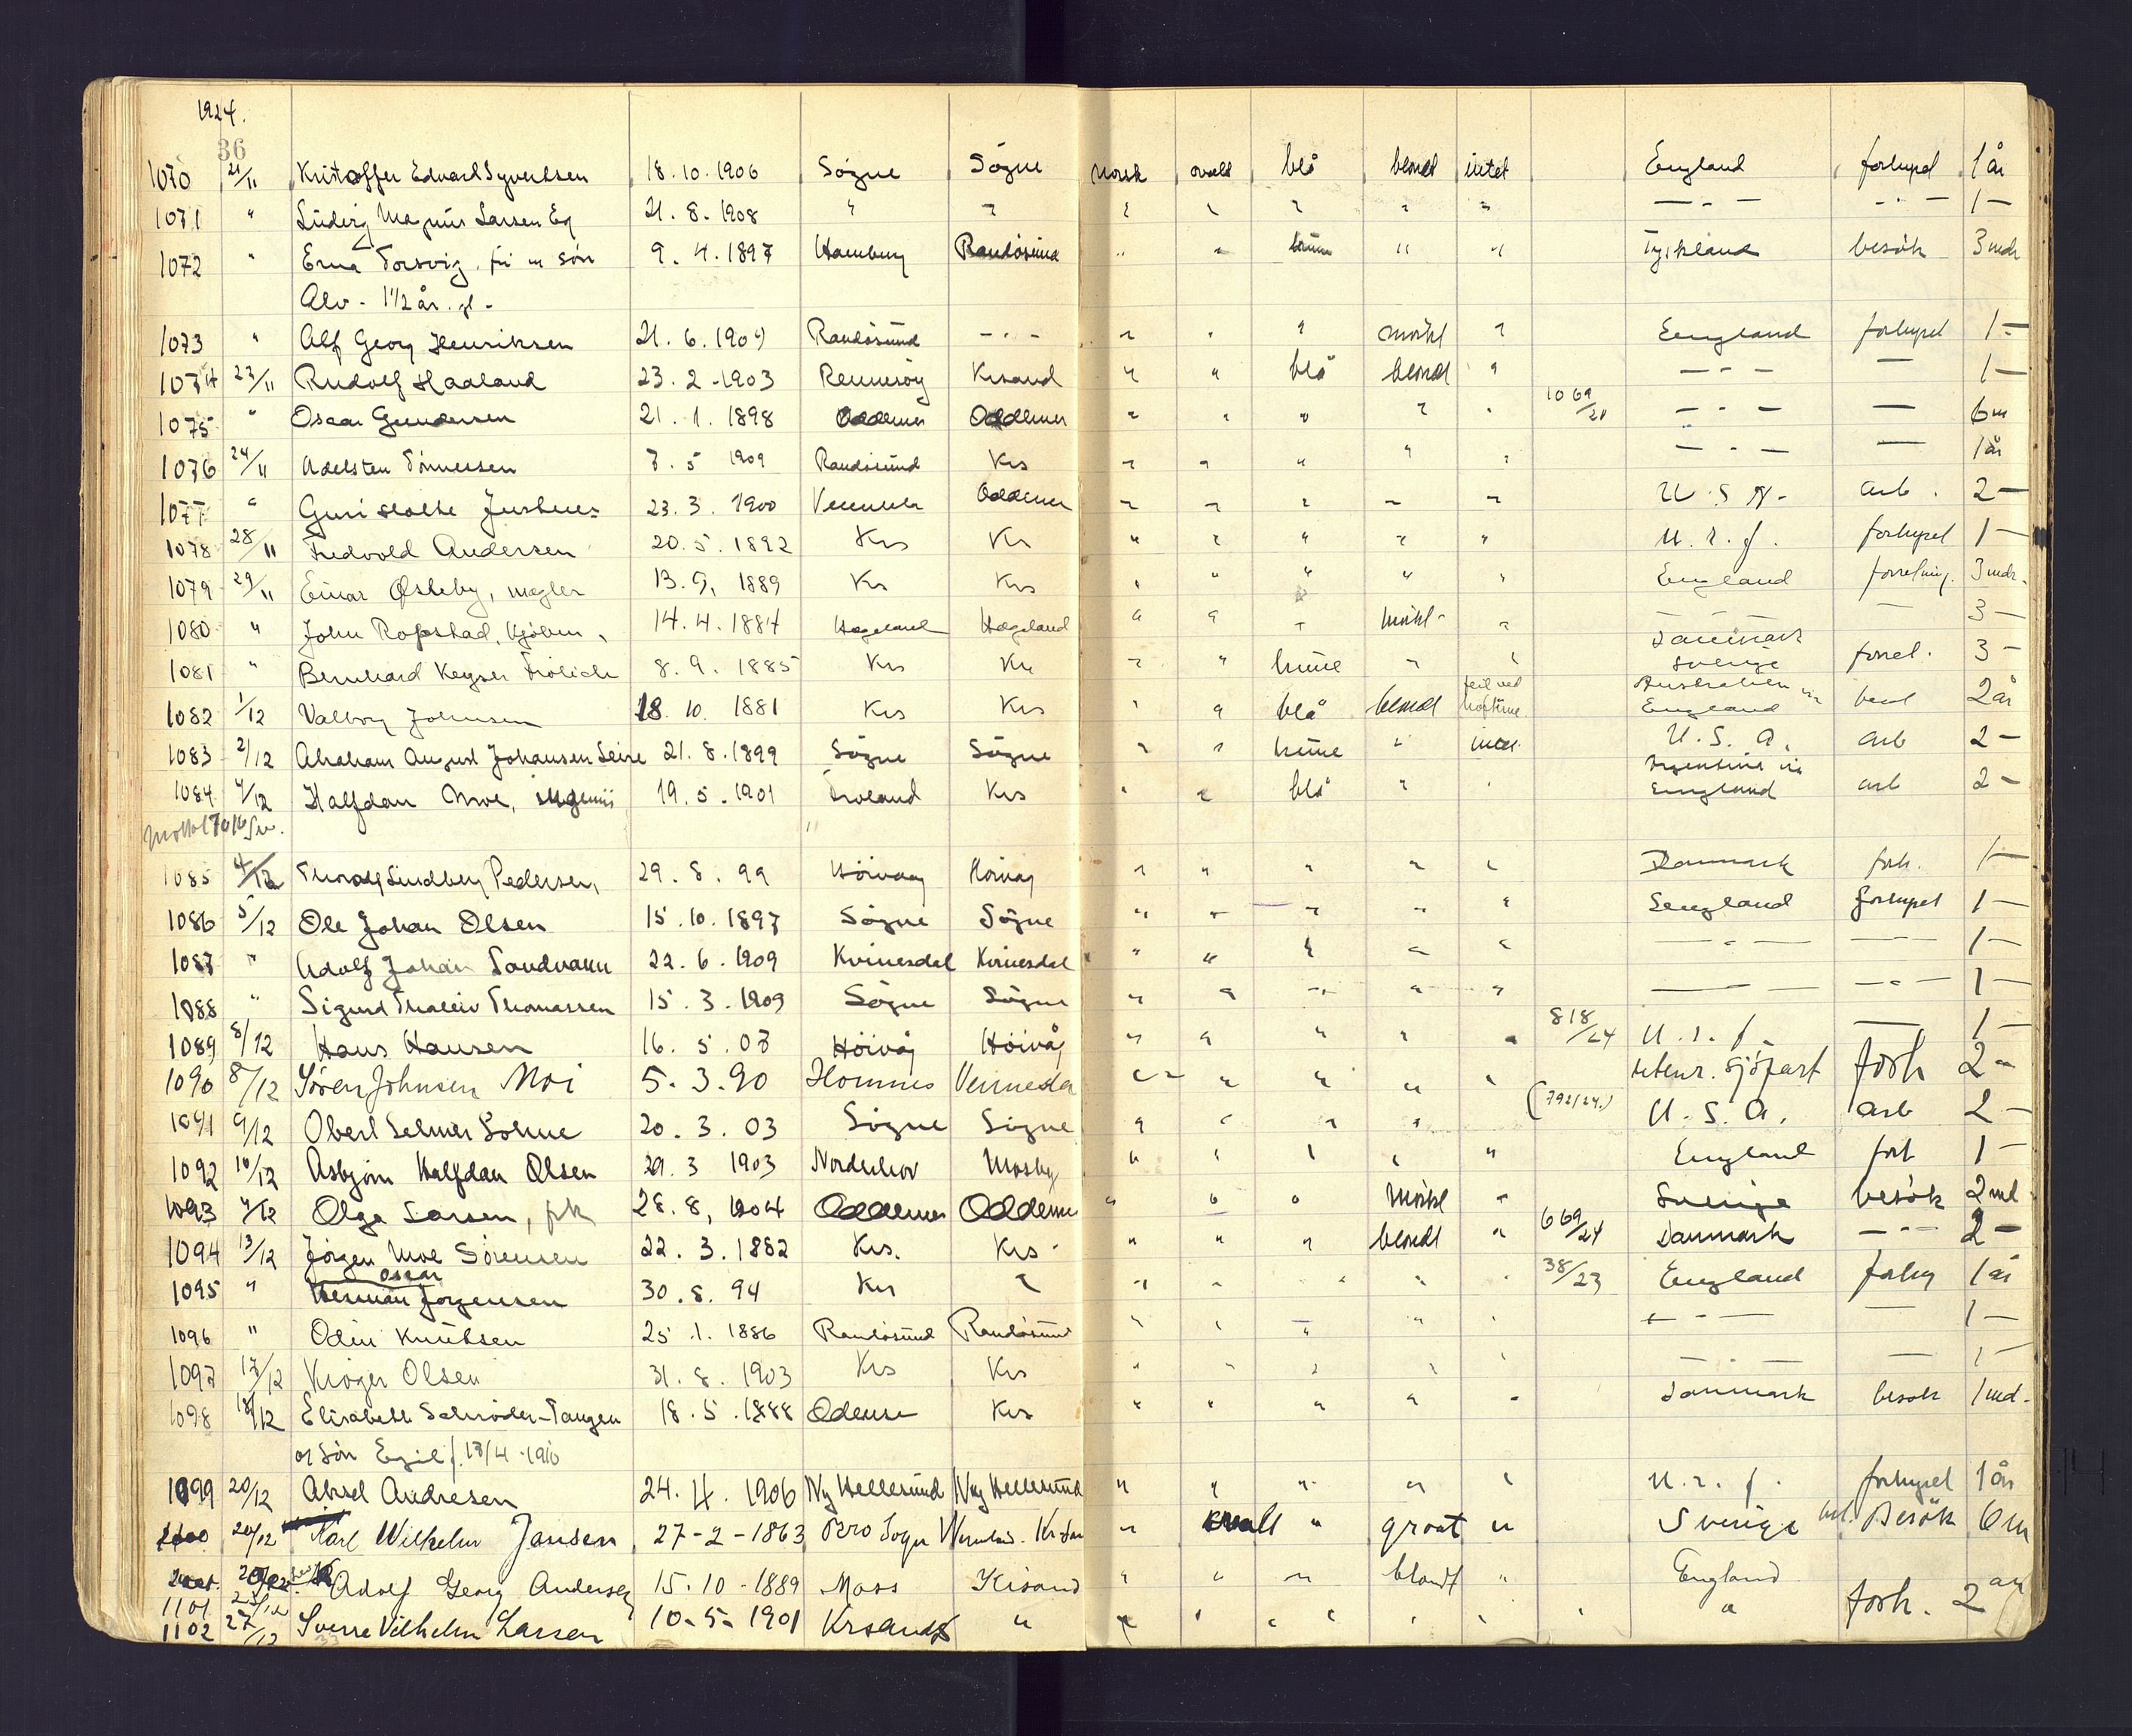 1924.
36
1070 21/11 Kristoffer Edvard Syvertsen 18.10.1906 Sögne Sögne norsk ovalt blå blondt intet England forhyret 1 år
1071 " Ludvig Magnus Larsen Eg 21.8.1908 " " " " " " " — " — — " — 1 —
1072 " Erna Torsvig, fru m sön 9.4.1897 Hamburg Randösund " " brune " " Tyskland besök 3 mdr
Alv - 1 1/2 år. gl -
1073 " Alf Georg Henriksen 21.6.1909 Randösund — " — " " " mörkt " England forhyret 1 —
1074 23/11 Rudolf Haaland 23.2-1903 Rennesöy Krsand " " blå blondt " — " — — 1 —
1075 " Oscar Gundersen 21.1.1898 Oddernes Oddernes " " " " " 1069/21 — " — — 6 m
1076 24/11 Adelsten Tönnessen 7.5 1909 Randösund Krs " " " " " — " — — 1 år
1077 " Guri 23.3.1900 Vennesla Oddernes " " " " " U.S.A. arb. 2 —
1078 28/11 Fredvold Andersen 20.5.1892 Krs Kr " " " " " U.r.f. forhyret 1 —
1079 29/11 Einar Östeby, megler 13.9.1889 Krs Krs " " " " " England forretning. 3 mdr.
1080 " John Ropstad, Kjöbm, 14.4.1884 Hægeland Hægeland " " " mörkt " — — 3 —
1081 " Bernhard Keyser Frölich 8.9.1885 Krs Krs " " brune " " Danmark Sverige forret. 3 —
1082 1/12 Valborg Johnsen 18.10.1881 Krs Krs " " blå blondt feil ved hoftene. Australien via England besök 2 år
1083 2/12 Abraham August Johansen Leire 21.8.1899 Sögne Sögne " " brune " intet U.S.A. arb 2 —
1084 4/12 Halfdan Moe, ingeniör 19.5.1901 Froland Krs " " blå " " Argentina via England arb 2 —
1085 4/12 Thoralf Lindberg Pedersen, 29.8.99 Höivaag Höivåg " " " " " Danmark forh. 1 —
1086 5/12 Ole Johan Olsen 15.10.1897 Sögne Sögne " " " " " England forhyret 1 —
1087 " Adolf Johan Sandvann 22.6.1909 Kvinesdal Kvinesdal " " " " " — " — — 1 —
1088 " Sigurd Thalleiv Thomassen 15.3.1909 Sögne Sögne " " " " " — — — " — 1 —
1089 8/12 Hans Hansen 16.5.07 Höivåg Höivåg " " " " " 818/24 U.r.f. — 1 —
1090 8/12 Sören Johnsen Moi 5.3.90 Homnes Vennesla " " " " " utenr. sjöfart forh 2 —
1091 9/12 Obert Selmer Sohne 20.3.03 Sögne Sögne " " " " (792/24.) U.S.A. arb 2 —
1092 10/12 Asbjörn Halfdan Olsen 29.3 1903 Norderhov Mosby " " " " " England forh 1 —
1093 11/12 Olga Larsen, frk 28.8.1904 Oddernes Oddernes " " " mörkt " Sverige besök 2 md
1094 13/12 Jörgen Moe Sörensen 22.3.1882 Krs. Krs. " " " blondt " 669/24 Danmark — " — 2 —
1095 " Herman Oscar Jörgensen 30.8.94 Krs " " " " " " 38/23 England forhy 1 år
1096 " Odin Knutsen 25.1.1886 Randösund Randösund " " " " " — " — — 1 —
1097 17/12 Kröger Olsen 31.8.1903 Krs Krs " " " " " — " — — 1 —
1098 18/12 Elisabeth Schröder-Tangen 18.5.1888 Odense Krs " " " " " Danmark besök 1 md.
og sön Egil f. 17/4-1910
1099 20/12 Aksel Andresen 24.4.1906 Ny Hellesund Ny Hellesund " " " " " U.r.f. forhyret 1 år
1100 20/12 Karl Wilhelm Jansen 27-2-1863 Sogn " ovalt " graat " Sverige Besök 6 m
1101 23/12 Adolf Georg Andersen 15.10-1889 Moss Krsand " " " blondt " England
1102 27/12 Sverre Vilhelm Larsen 10-5-1901 Krsands " " " " " " " forh. 2 år